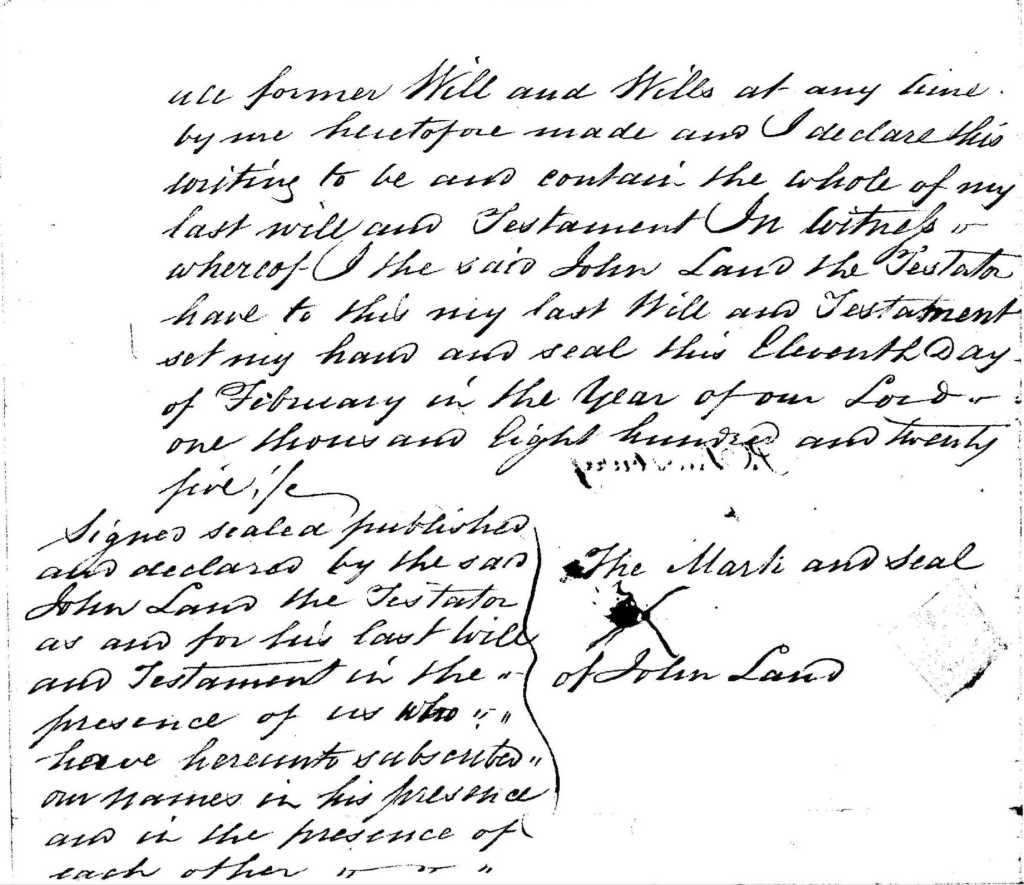 all former Will and Wills at any time
by me heretofore made and I declare this
writing to be and contain the whole of my
last will and Testament In Witness
whereof I the said John Land the Testator
have to this my last Will and Testament
set my hand and seal this Eleventh Day
of February in the Year of our Lord
one thousand Eight hundred and twenty
five
Signed sealed published
and declared by the said
John Land the Testator
as and for his last Will
and Testament in the
presence of us who
have hereunto subscribed
our names in his presence
and in the presence of
each other
The Mark and Seal
X
of John Land